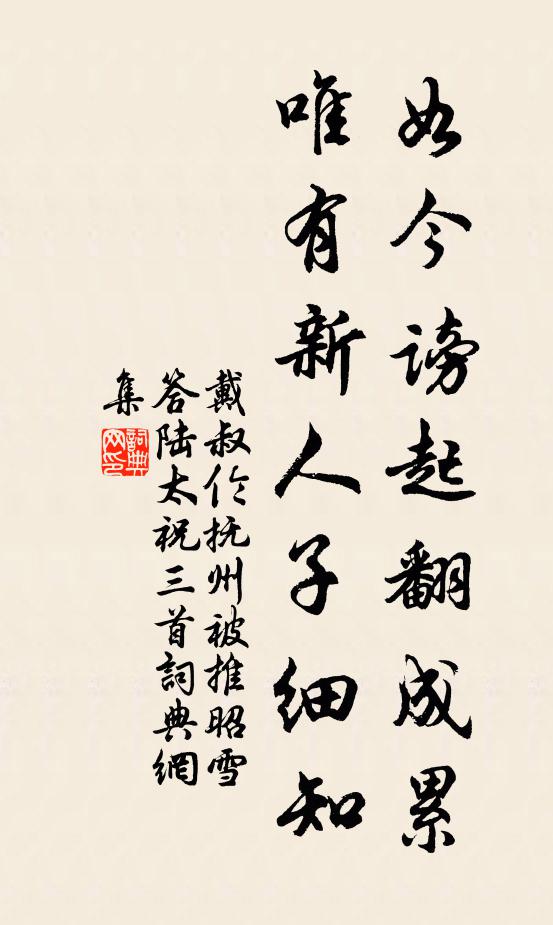 如今謗起翻成累
唯有新人子細知
戴叔伦抚州被推昭雪
答陆太祝三首詞典網
集
詞典网印